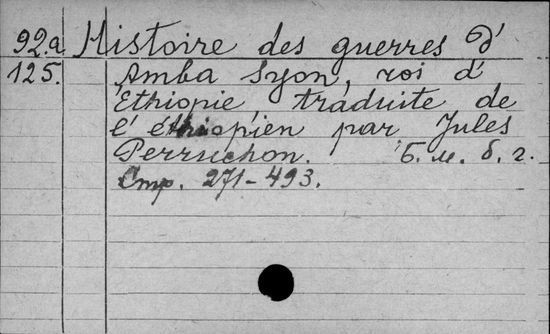 92.a Histoire des guerres d'
125. Amba Syon, roi d'
Éthiopie, traduite de
l'éthiopien par Jules
Perruchon. Б. м. б. г.
Стр. 271-493.